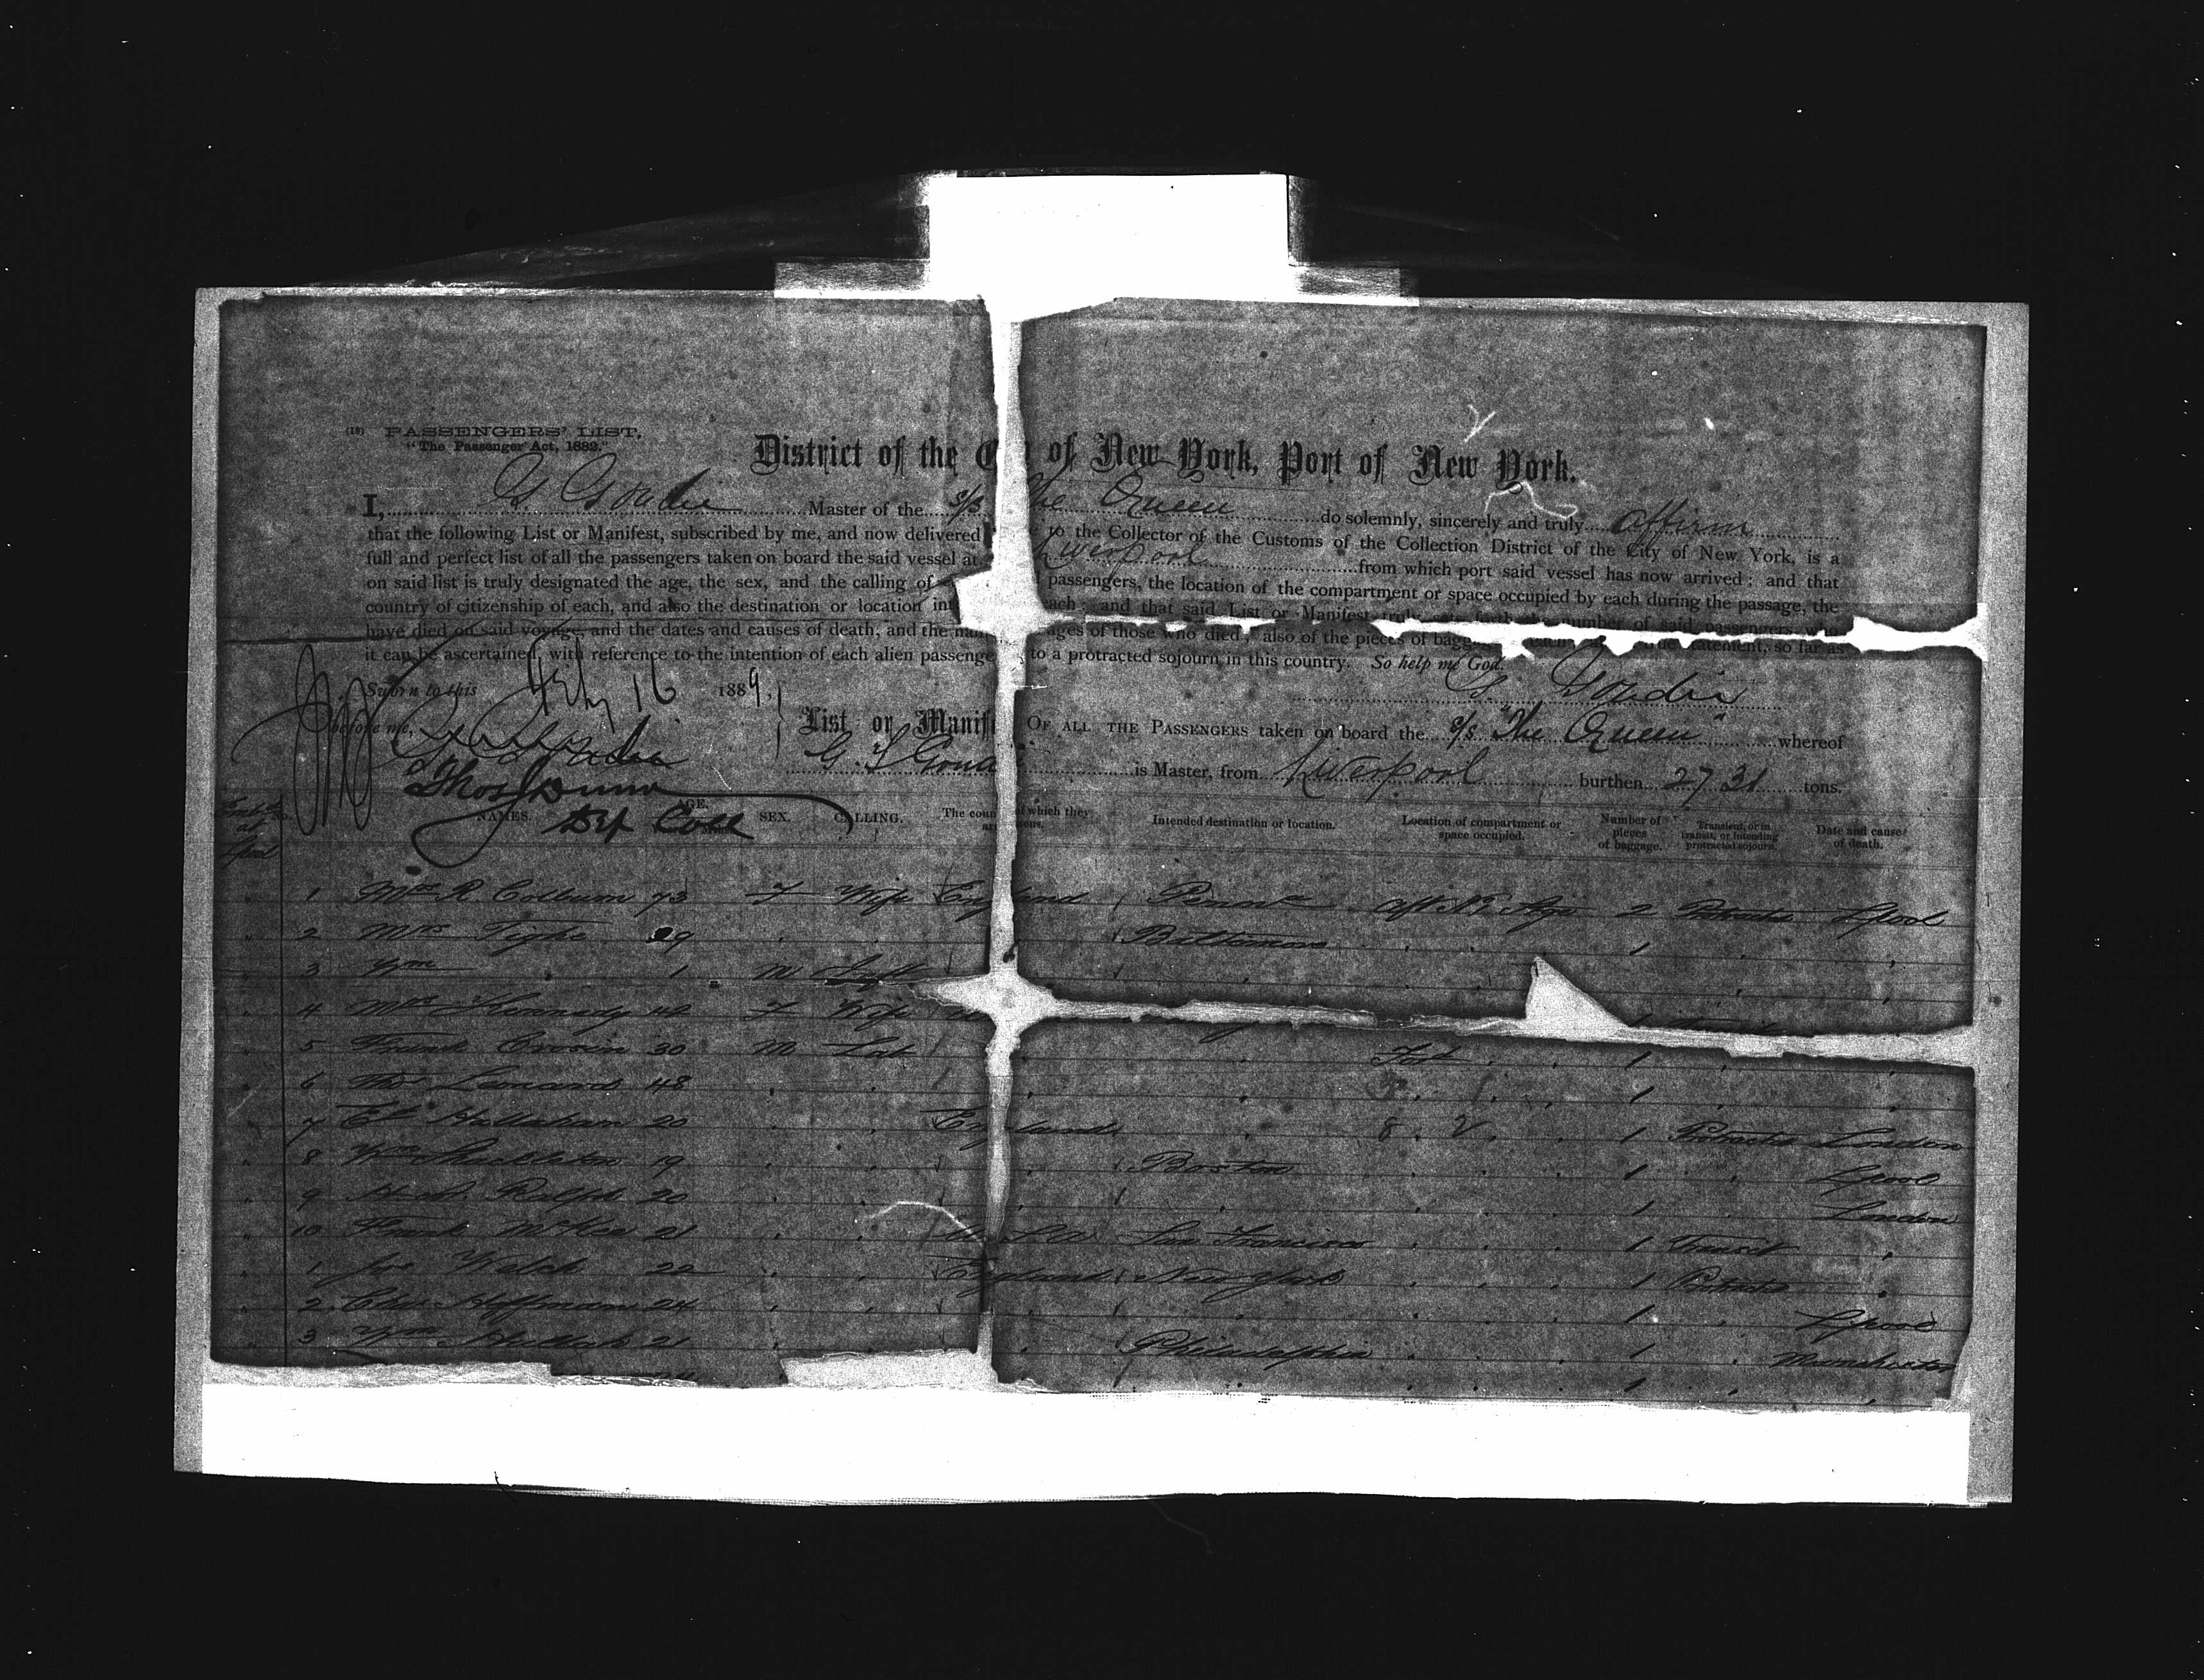 (18) PASSENGERS' LIST,
"The Passenger Act, 1882."
District of the C of New York, Port of New York.
I, G Gowdie Master of the s/s The Queen do solemnly, sincerely and truly affirm
that the following List or Manifest, subscribed by me, and now delivered to the Collector of the Customs of the Collection District of the City of New York, is a
full and perfect list of all the passengers taken on board the said vessel at Liverpool from which port said vessel has now arrived; and that
on said list is truly designated the age, the sex, and the calling of passengers, the location of the compartment or space occupied by each during the passage, the
country of citizenship of each, and also the destination or location int each; and that said List or Manifest truly number of said passengers who
have died on said voyage, and the dates and causes of death, and the nam ages of those who died; also of the pieces of bagg statement, so far as
it can be ascertained, with reference to the intention of each alien passenge to a protracted sojourn in this country. So help me God.
Sworn to this Feby 16 1889,
G Gowdie
before me,
List or Manif OF ALL THE PASSENGERS taken on board the s/s "The Queen" whereof
is Master, from Liverpool burthen 2731 tons.
Thos J Dunn
Dy Coll
NAMES. AGE. SEX. CALLING. The coun of which they Intended destination or location. Location of compartment or space occupied. Number of pieces of baggage. Transient, or in transit, or intending protracted sojourn. Date and cause of death.
1 Mrs R Colburn 73 F Wife England Penna Aft No 1 2 Protracted Lpool
2 Mrs Tighe 29 Baltimore 1
3 Wm 1 M
4 Mrs Kennedy 42 F Wife
5 Frank 30 M Lab 1
6 Thos Leonard 48 1
7 Ed Hallahan 20 England 8 2 1 Protracted London
8 Wm Shackleton 19 Boston 1 Lpool
9 Ralph 20 1 London
10 Frank McKee 21 U.S.A. San Francisco 1 Transit
1 Jos Welch 22 England New York 1 Protracted
2 Chas Hoffman 24 1 Lpool
3 Wm 21 Philadelphia 1 Manchester
1